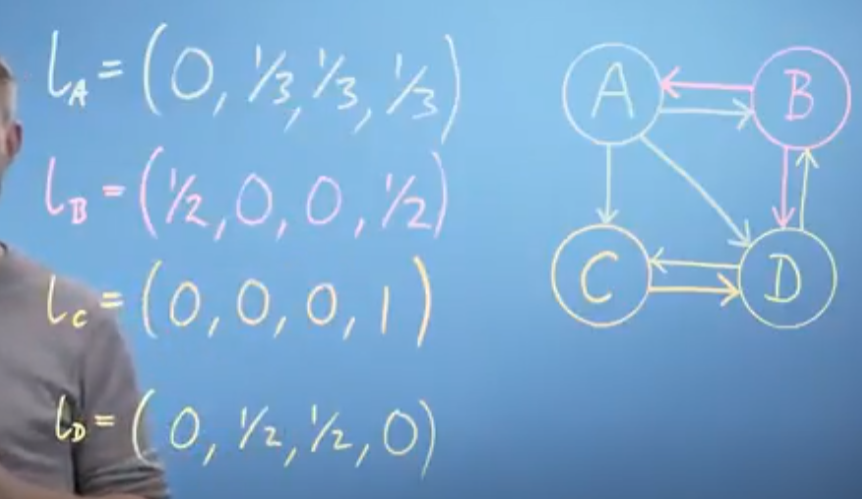 l_A = (0, 1/3, 1/3, 1/3)
l_B = (1/2, 0, 0, 1/2)
l_C = (0, 0, 0, 1)
l_D = (0, 1/2, 1/2, 0)
A
B
C
D